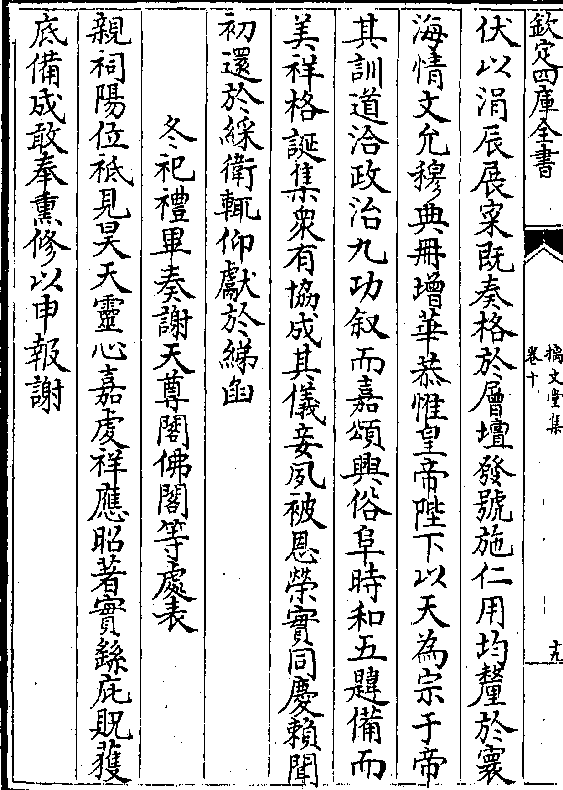 欽定四庫全書
摛文堂集
卷十
十九
伏以涓辰展寀既奏格於層壇發號施仁用均釐於寰
海情文允穆典冊增華恭惟皇帝陛下以天為宗于帝
其訓道洽政治九功叙而嘉頌興俗阜時和五韙備而
美祥格誕集衆有協成其儀妾夙被恩榮實同慶賴聞
初還於綵衛輒仰獻於綈凾
冬祀禮畢奏謝天尊閣佛閣等處表
親祠陽位祗見昊天靈心嘉虔祥應昭著實繇庇貺獲
底備成敢奉熏修以申報謝